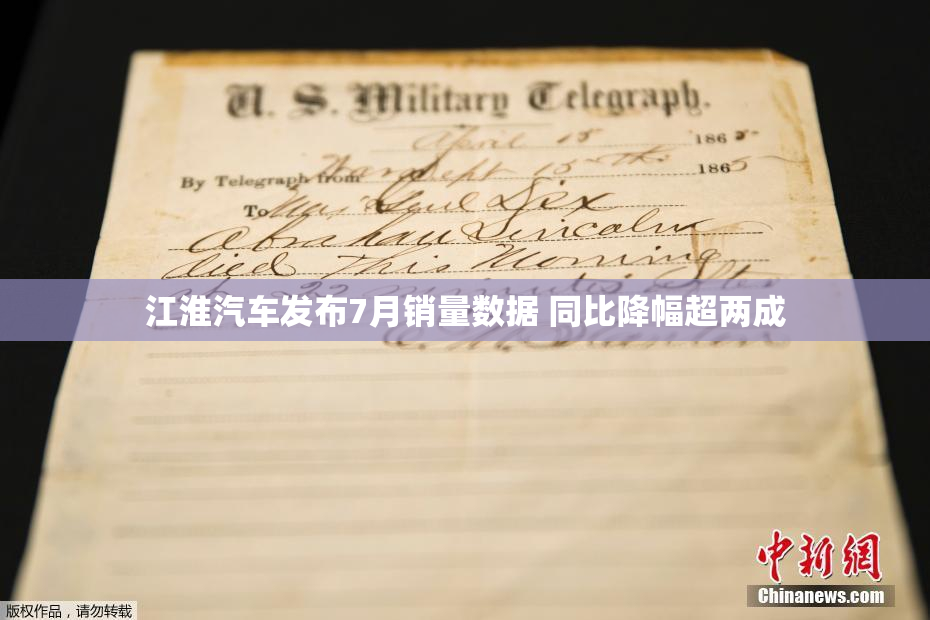 U. S. Military Telegraph.
April 15 1865
By Telegraph from War Dept 15th 1865
To Maj Genl Dix
Abraham Lincoln
died This Morning
at 22 minutes after
江淮汽车发布7月销量数据 同比降幅超两成
E. M. Stanton
中新网
Chinanews.com
版权作品，请勿转载